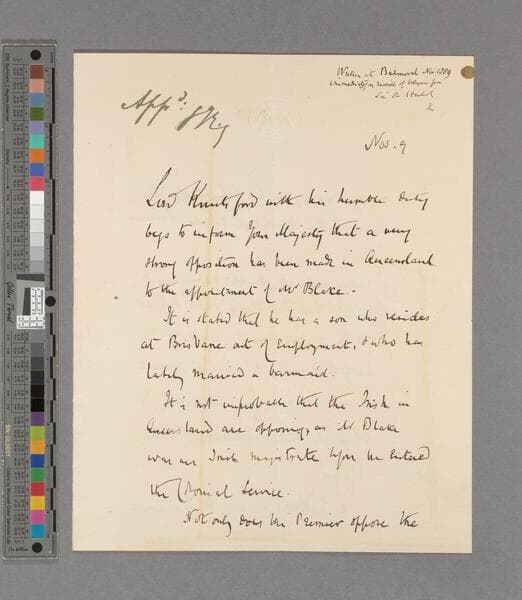 Written at Balmoral Nov 1889
immediately on receipt of telegram from
Sir
K
Appd. VRI
Nov. 9
Lord Knutsford with his humble duty
begs to inform Your Majesty that a very
strong opposition has been made in Queensland
to the appointment of Mr Blake.-
It is stated that he has a son who resides
at Brisbane out of Employment, & who has
lately married a barmaid.
It is not improbable that the Irish in
Queensland are opposing, as Mr Blake
was an Irish magistrate before he entered
the Colonial Service.
Not only does the Premier oppose the